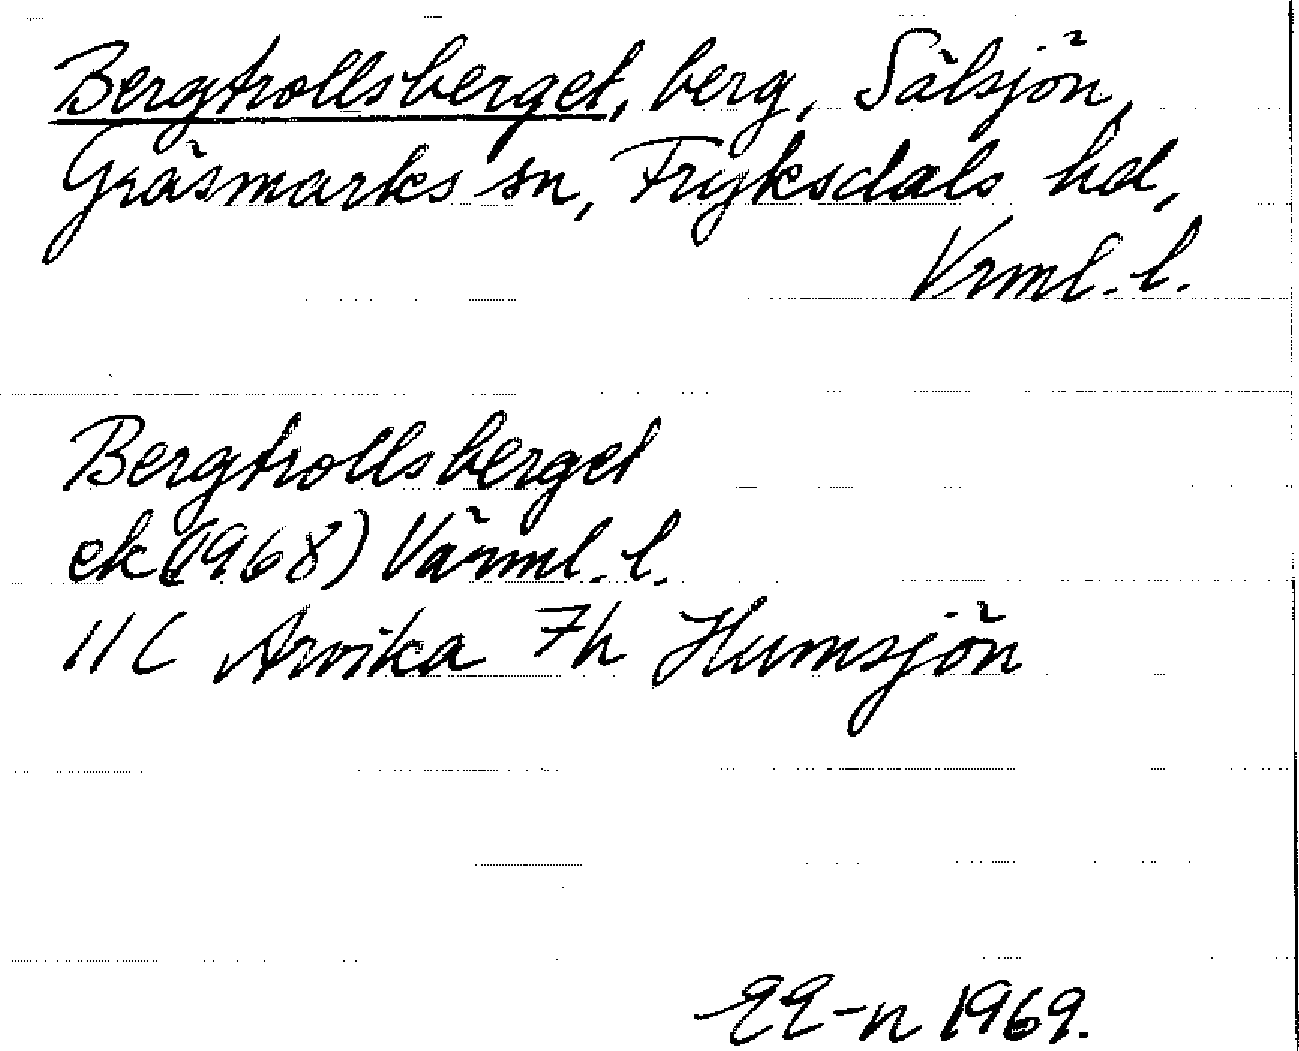 Bergtrollsberget, berg, Sälsjön,
Gräsmarks sn, Fryksdals hd,
Vrml. l.
Bergtrollsberget
ek (1968) Värml. l.
11C Arvika 7h Humsjön
EE-n 1969.